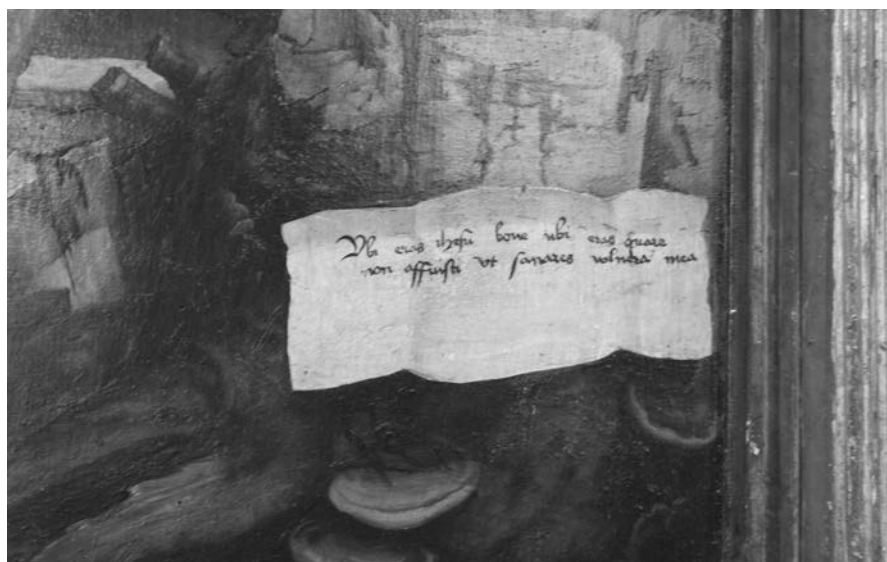 Vbi eras ihesu bone vbi eras quare
non affuisti vt sanares vulnera mea